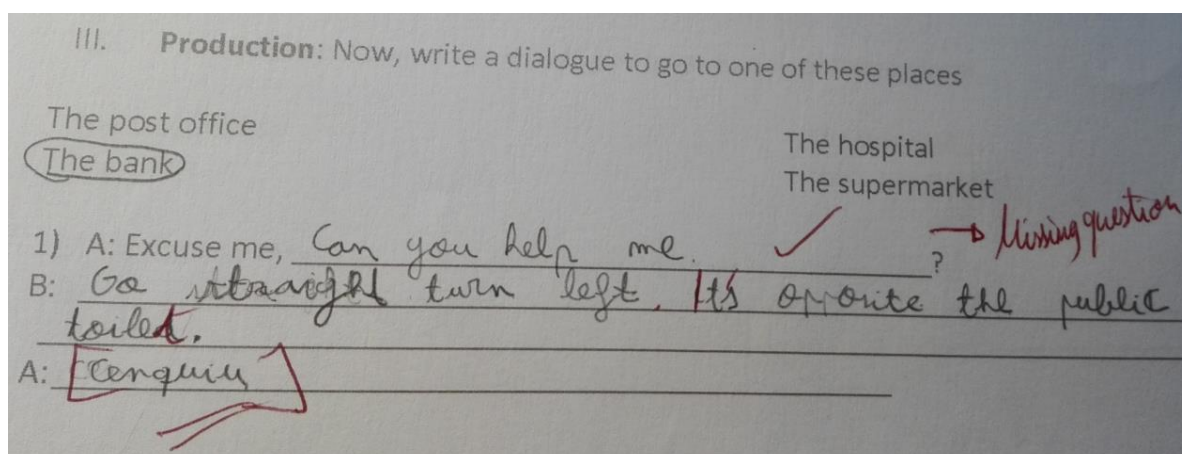 III. Production: Now, write a dialogue to go to one of these places
The post office
The bank
The hospital
The supermarket
1) A: Excuse me, Can you help me. ? → Missing question
B: Go straight turn left. It's opposite the public
toilet.
A: Cenquiu